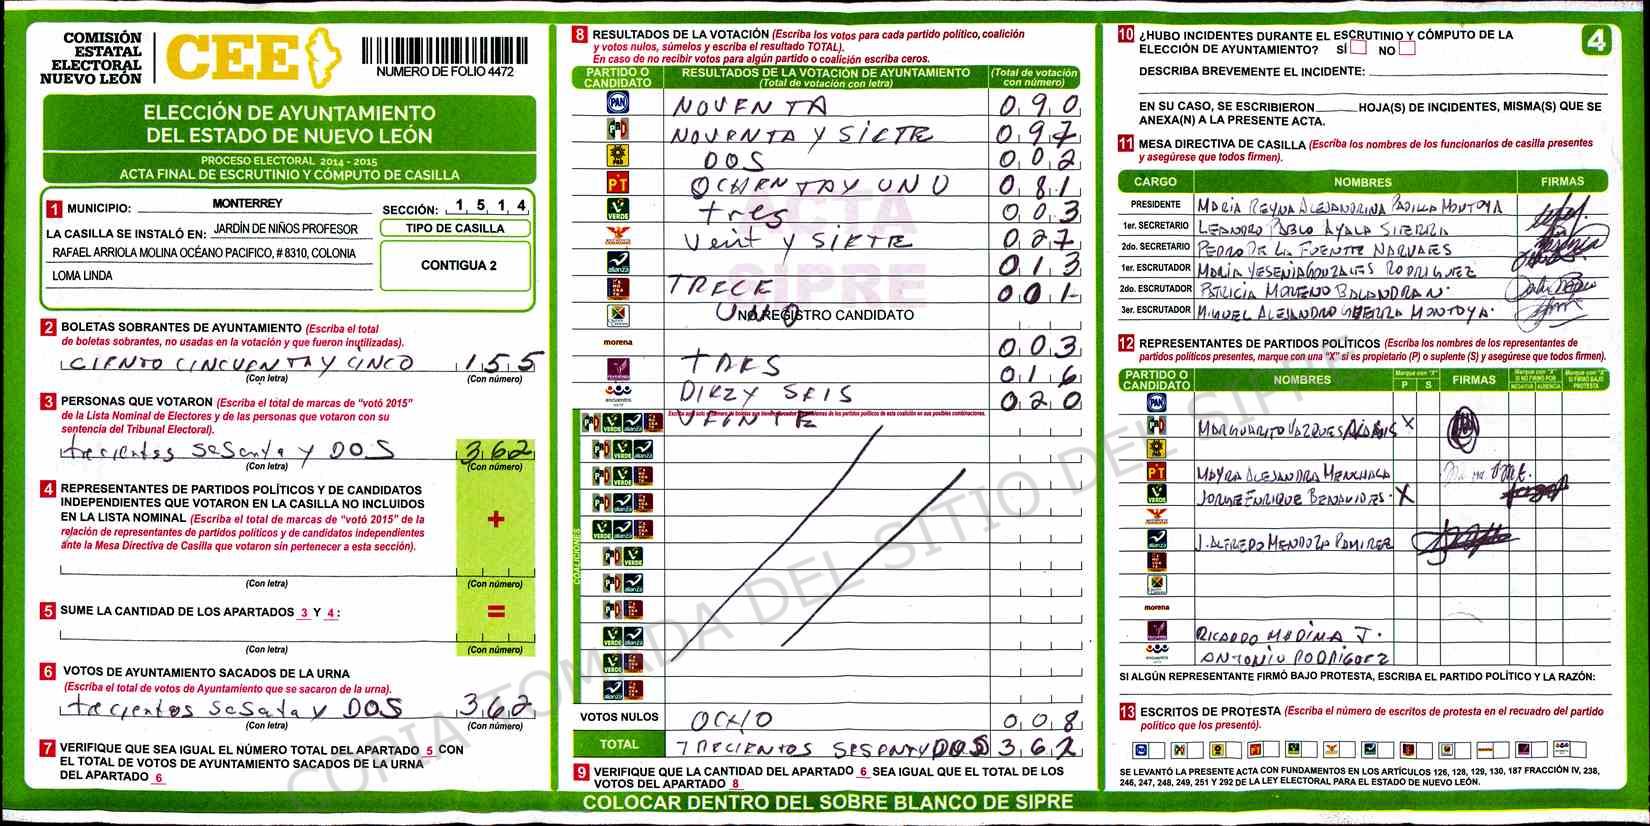 COMISIÓN
ESTATAL
ELECTORAL
NUEVO LEÓN
CEE
NUMERO DE FOLIO 4472
ELECCIÓN DE AYUNTAMIENTO
DEL ESTADO DE NUEVO LEÓN
PROCESO ELECTORAL 2014 - 2015
ACTA FINAL DE ESCRUTINIO Y CÓMPUTO DE CASILLA
1 MUNICIPIO: MONTERREY SECCIÓN: 1 5 1 4
LA CASILLA SE INSTALÓ EN: JARDÍN DE NIÑOS PROFESOR
RAFAEL ARRIOLA MOLINA OCÉANO PACIFICO, # 8310, COLONIA
LOMA LINDA
TIPO DE CASILLA
CONTIGUA 2
2 BOLETAS SOBRANTES DE AYUNTAMIENTO (Escriba el total
de boletas sobrantes, no usadas en la votación y que fueron inutilizadas).
CIENTO CINCUENTA Y CINCO 1 5 5
(Con letra) (Con número)
3 PERSONAS QUE VOTARON (Escriba el total de marcas de "votó 2015"
de la Lista Nominal de Electores y de las personas que votaron con su
sentencia del Tribunal Electoral).
trecientos sesenta y DOS 3 6 2
(Con letra) (Con número)
4 REPRESENTANTES DE PARTIDOS POLÍTICOS Y DE CANDIDATOS
INDEPENDIENTES QUE VOTARON EN LA CASILLA NO INCLUIDOS
EN LA LISTA NOMINAL (Escriba el total de marcas de "votó 2015" de la
relación de representantes de partidos políticos y de candidatos independientes
ante la Mesa Directiva de Casilla que votaron sin pertenecer a esta sección).
+
(Con letra) (Con número)
5 SUME LA CANTIDAD DE LOS APARTADOS 3 Y 4:
=
(Con letra) (Con número)
6 VOTOS DE AYUNTAMIENTO SACADOS DE LA URNA
(Escriba el total de votos de Ayuntamiento que se sacaron de la urna).
trecientos sesata y DOS 3 6 2
(Con letra) (Con número)
7 VERIFIQUE QUE SEA IGUAL EL NÚMERO TOTAL DEL APARTADO 5 CON
EL TOTAL DE VOTOS DE AYUNTAMIENTO SACADOS DE LA URNA
DEL APARTADO 6
8 RESULTADOS DE LA VOTACIÓN (Escriba los votos para cada partido político, coalición
y votos nulos, súmelos y escriba el resultado TOTAL).
En caso de no recibir votos para algún partido o coalición escriba ceros.
PARTIDO O CANDIDATO RESULTADOS DE LA VOTACIÓN DE AYUNTAMIENTO (Total de votación con letra) (Total de votación con número)
PAN NOVENTA 0 9 0
PRD NOVENTA Y SIETE 0 9 7
PRD DOS 0 0 2
PT OCHENTA Y UNO 0 8 1
VERDE tres 0 0 3
Veint y SIETE 0 2 7
alianza 0 1 3
TRECE 0 0 1
UNO NO REGISTRO CANDIDATO
morena 0 0 3
TRES 0 1 6
DIEZY SEIS 0 2 0
VEINTE
COALICIONES
VOTOS NULOS OCHO 0 0 8
TOTAL TRECIENTOS SESENTYDOS 3 6 2
9 VERIFIQUE QUE LA CANTIDAD DEL APARTADO 6 SEA IGUAL QUE EL TOTAL DE LOS
VOTOS DEL APARTADO 8
COLOCAR DENTRO DEL SOBRE BLANCO DE SIPRE
ACTA
SIPRE
COPIA TOMADA DEL SITIO DEL SIPRE
10 ¿HUBO INCIDENTES DURANTE EL ESCRUTINIO Y CÓMPUTO DE LA
ELECCIÓN DE AYUNTAMIENTO? SÍ NO
4
DESCRIBA BREVEMENTE EL INCIDENTE:
EN SU CASO, SE ESCRIBIERON HOJA(S) DE INCIDENTES, MISMA(S) QUE SE
ANEXA(N) A LA PRESENTE ACTA.
11 MESA DIRECTIVA DE CASILLA (Escriba los nombres de los funcionarios de casilla presentes
y asegúrese que todos firmen).
CARGO NOMBRES FIRMAS
PRESIDENTE MARIA REYNA ALEJANDRINA PADILLA MONTOYA
1er. SECRETARIO LEANDRO PABLO AYALA SIERRA
2do. SECRETARIO PEDRO DE LA FUENTE NARVAES
1er. ESCRUTADOR MARIA YESENIA GONZALES RODRIGUEZ
2do. ESCRUTADOR PATRICIA MORENO BALANDRAN.
3er. ESCRUTADOR MIGUEL ALEJANDRO GUERRA MONTOYA.
12 REPRESENTANTES DE PARTIDOS POLÍTICOS (Escriba los nombres de los representantes de
partidos políticos presentes, marque con una "X" si es propietario (P) o suplente (S) y asegúrese que todos firmen).
PARTIDO O CANDIDATO NOMBRES Marque con "X" P S FIRMAS Marque con "X" SI NO FIRMÓ POR NEGATIVA AUSENCIA Marque con "X" SI FIRMÓ BAJO PROTESTA
PAN
MARGUARITO VAZQUES X
PT MAYRA ALEJANDRA MENCHACA
VERDE JORGE ENRIQUE BENAVIDES. X
alianza J. ALFREDO MENDOZA RAMIREZ
morena
RICARDO MEDINA J.
ANTONIO RODRIGUEZ
SI ALGÚN REPRESENTANTE FIRMÓ BAJO PROTESTA, ESCRIBA EL PARTIDO POLÍTICO Y LA RAZÓN:
13 ESCRITOS DE PROTESTA (Escriba el número de escritos de protesta en el recuadro del partido
político que los presentó).
SE LEVANTÓ LA PRESENTE ACTA CON FUNDAMENTOS EN LOS ARTÍCULOS 126, 128, 129, 130, 187 FRACCIÓN IV, 238,
246, 247, 248, 249, 251 Y 292 DE LA LEY ELECTORAL PARA EL ESTADO DE NUEVO LEÓN.